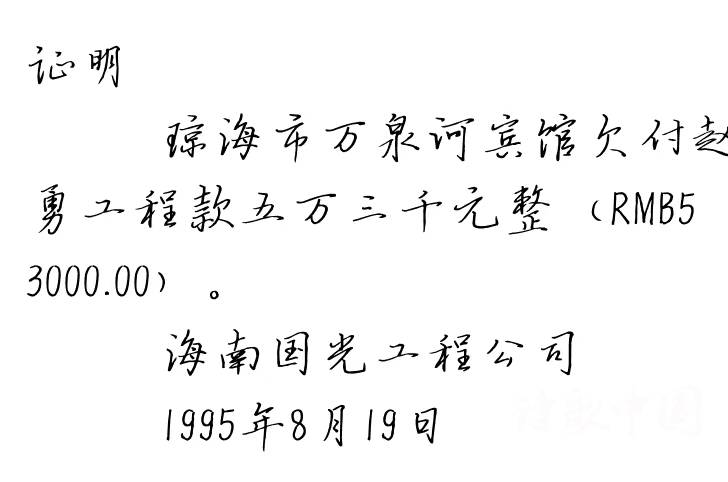 证明
琼海市万泉河宾馆欠付赵
勇工程款五万三千元整（RMB5
3000.00）。
海南国光工程公司
1995年8月19日
诗歌中国